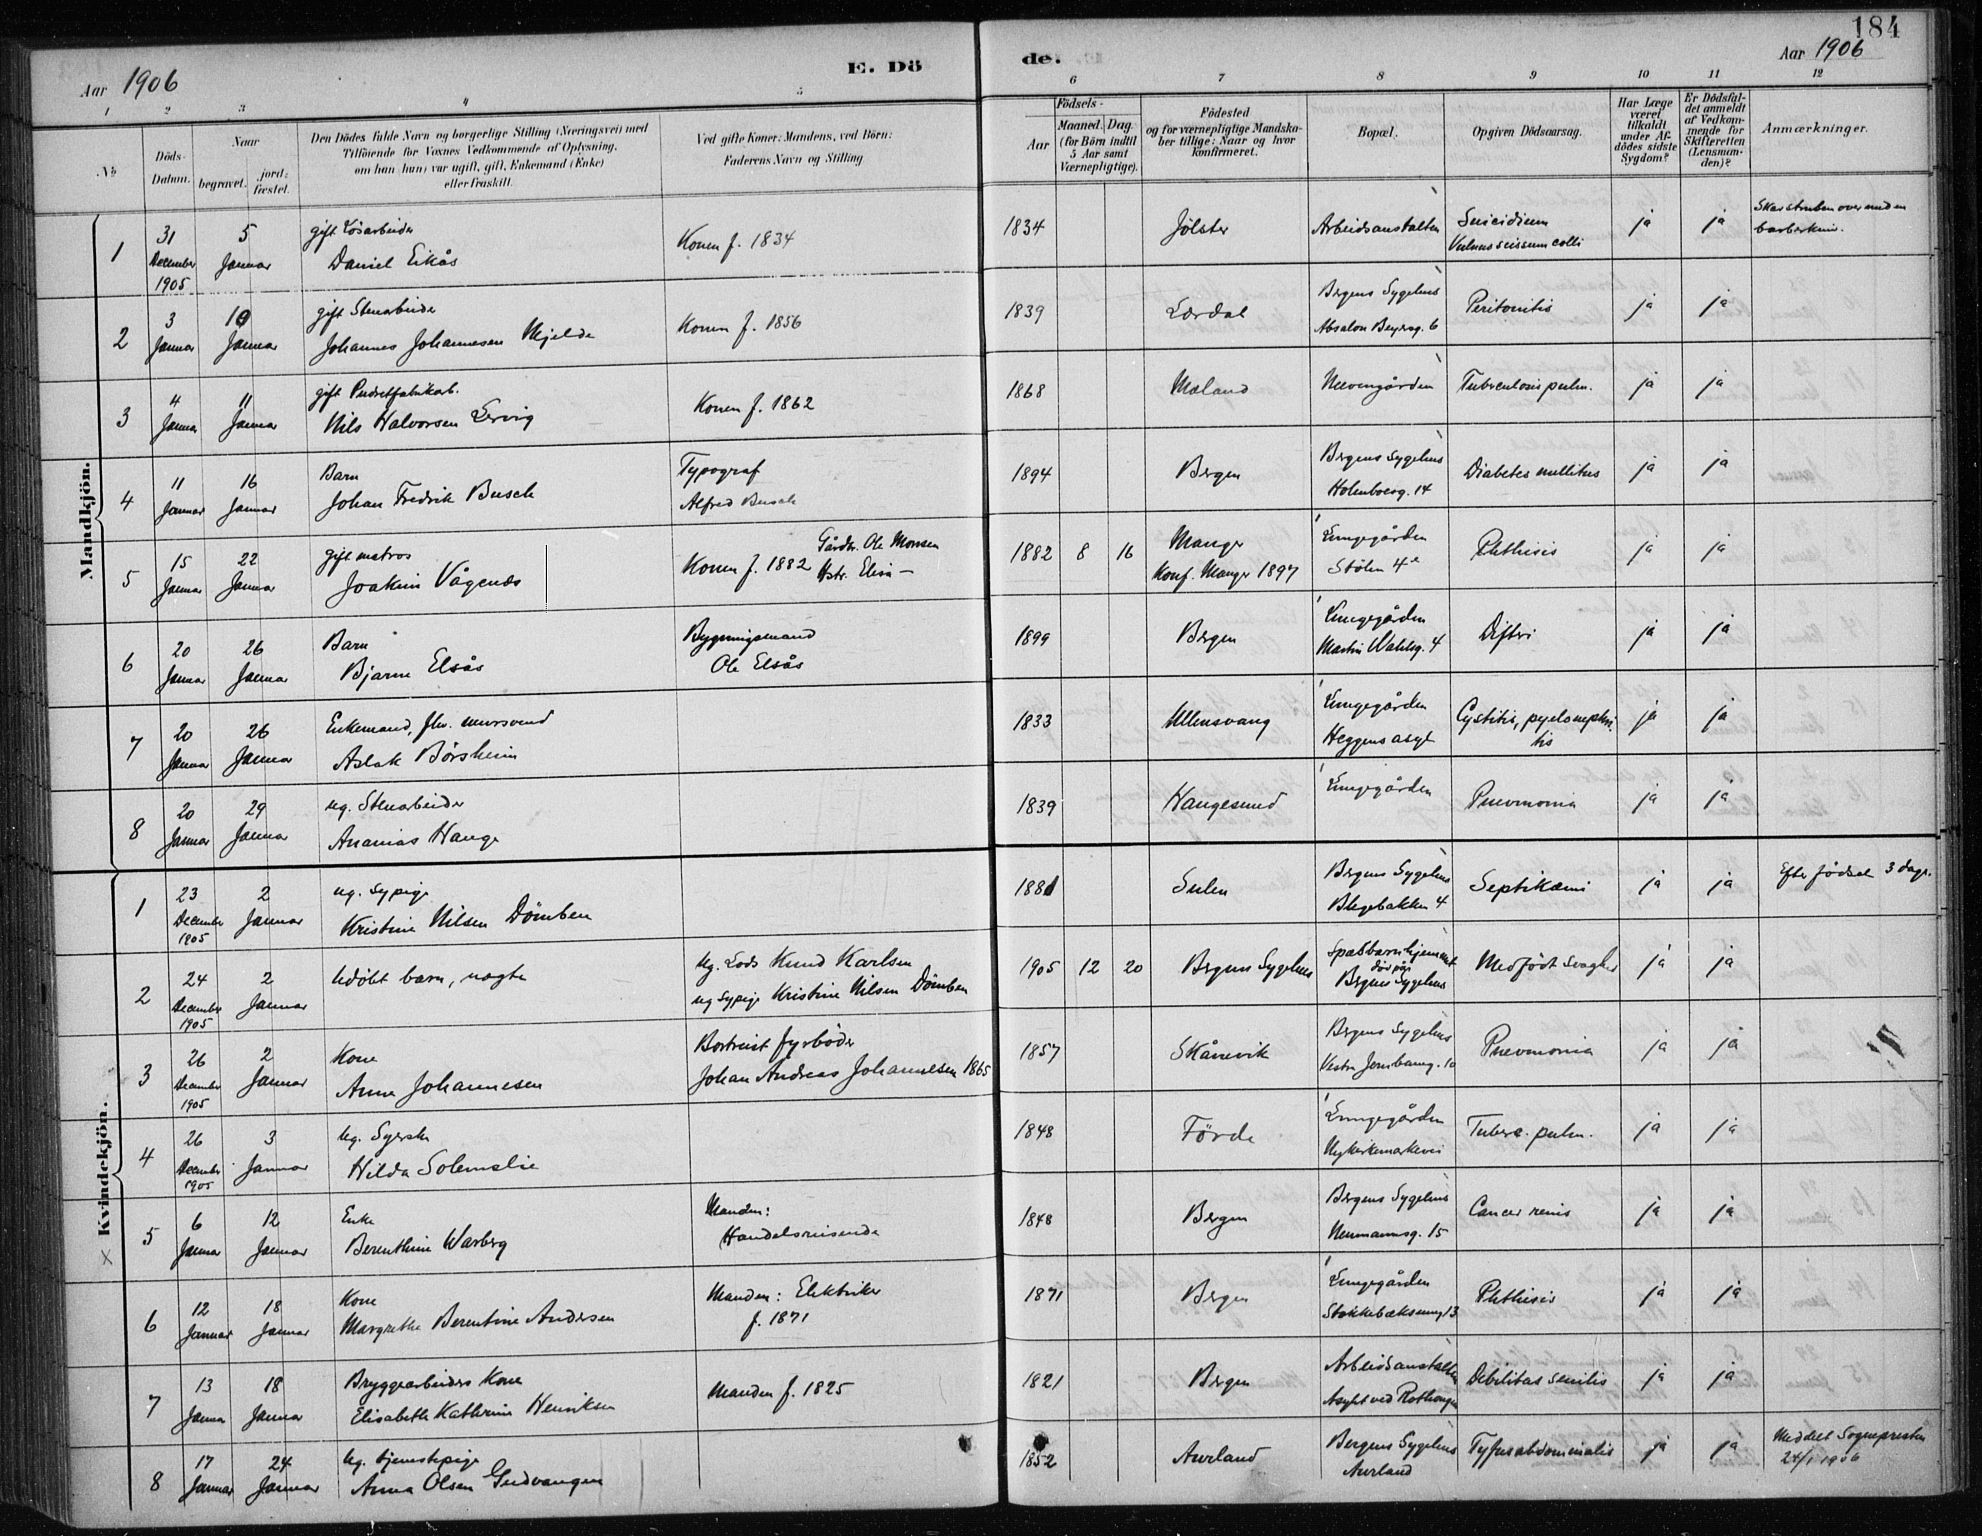 184
Aar 1906
E. Dö
de.
Aar 1906
1 2 3 4 5 6 7 8 9 10 11 12
№
Döds-Datum.
Naar
begravet.
jord-fæstet.
Den Dödes fulde Navn og borgerlige Stilling (Næringsvei) med
Tilföiende for Voxnes Vedkommende af Oplysning,
om han (hun) var ugift, gift, Enkemand (Enke)
eller fraskilt.
Ved gifte Koner: Mandens, ved Börn:
Faderens Navn og Stilling
Födsels-
Aar
Maaned. Dag.
(for Börn indtil
5 Aar samt
Værnepligtige).
Födested
og for værnepligtige Mandska-
ber tillige: Naar og hvor
konfirmeret.
Bopæl.
Opgiven Dödsaarsag.
Har Læge
været
tilkaldt
under Af-
dödes sidste
Sygdom?
Er Dödsfal-
det anmeldt
af Vedkom-
mende for
Skifteretten
(Lensman-
den)?
Anmærkninger.
Mandkjön.
1
31 December 1905
5 Januar
gift Løsarbeider
Daniel Eikås
Konen f. 1834
1834
Jølster
Arbeidsanstalten
Suicidium
Vulnus scissum colli
ja
ja
Skar struben over med en
barberkniv.
2
3 Januar
10 Januar
gift Stenarbeider
Johannes Johannesen Mjelde
Konen f. 1856
1839
Lærdal
Bergens Sygehus
Absalon Beyersg. 6
Peritonitis
ja
ja
3
4 Januar
11 Januar
gift Pudretfabrikarb.
Nils Halvorsen Lervig
Konen f. 1862
1868
Mæland
Neevengården
Tuberculosis pulm.
ja
ja
4
11 Januar
16 Januar
Barn
Johan Fredrik Busch
Typograf
Alfred Busch
1894
Bergen
Bergens Sygehus
Holenboesg. 14
Diabetes mellitus
ja
ja
5
15 Januar
22 Januar
gift matros
Joakim Vågenæs
Konen f. 1882
Gårdbr. Ole Monsen
Hstr. Elisa —
1882 8 16
Manger
Konf. Manger 1897
Lungegården
Stølen 4e
Phthisis
ja
ja
6
20 Januar
26 Januar
Barn
Bjarne Elsås
Bygningsmand
Ole Elsås
1899
Bergen
Lungegården
Martin Wahlsg. 4
Difteri
ja
ja
7
20 Januar
26 Januar
Enkemand, fhv. mursvend
Aslak Børsheim
1833
Ullensvang
Lungegården
Heggens asyl
Cystitis, pyelonephri-
tis
ja
ja
8
20 Januar
29 Januar
ug. Stenarbeider
Ananias Hauge
1839
Haugesund
Lungegården
Pneumonia
ja
ja
Kvindekjön.
1
23 December 1905
2 Januar
ug. sypige
Kristine Nilsen Dömben
1881
Sulen
Bergens Sygehus
Blegebakken 4
Septikæmi
ja
ja
Efter fødsel 3 dage.
2
24 December 1905
2 Januar
Udöbt barn, uægte
Ug. Lods Knud Karlsen
ug sypige Kristine Nilsen Dömben
1905 12 20
Bergens Sygehus
Spædbarnhjemmet
dør på
Bergens Sygehus
Medfødt svaghed
ja
ja
3
26 December 1905
2 Januar
Kone
Anna Johannesen
Bortreist fyrbøder
Johan Andreas Johannesen 1865
1857
Skånevik
Bergens Sygehus
Vestre Jernbaneg. 10
Pneumonia
ja
ja
4
26 December 1905
3 Januar
Ug. Syerske
Hilda Solemslie
1848
Förde
Lungegården
Nykirkemarkevei
Tuberc. pulm.
ja
ja
5
6 Januar
12 Januar
Enke
Berenthine Warberg
Manden:
Handelsreisende
1848
Bergen
Bergens Sygehus
Neumannsg. 15
Cancer renis
ja
ja
6
12 Januar
18 Januar
Kone
Margrethe Berentine Andersen
Manden: Elektriker
f. 1871
1871
Bergen
Lungegården
Stokkebæksmug 13
Phthisis
ja
ja
7
13 Januar
18 Januar
Bryggearbeiders Kone
Elisabeth Kathrine Henriksen
Manden f. 1825
1821
Bergen
Arbeidsanstalten
Asylet ved Rothaugen
Debilitas senilis
ja
ja
8
17 Januar
24 Januar
Ug. tjenestepige
Anna Olsen Gudvangen
1852
Aurland
Bergens Sygehus
Aurland
Tyfus abdominalis
ja
ja
Meddelt Sognepresten
24/1 1906